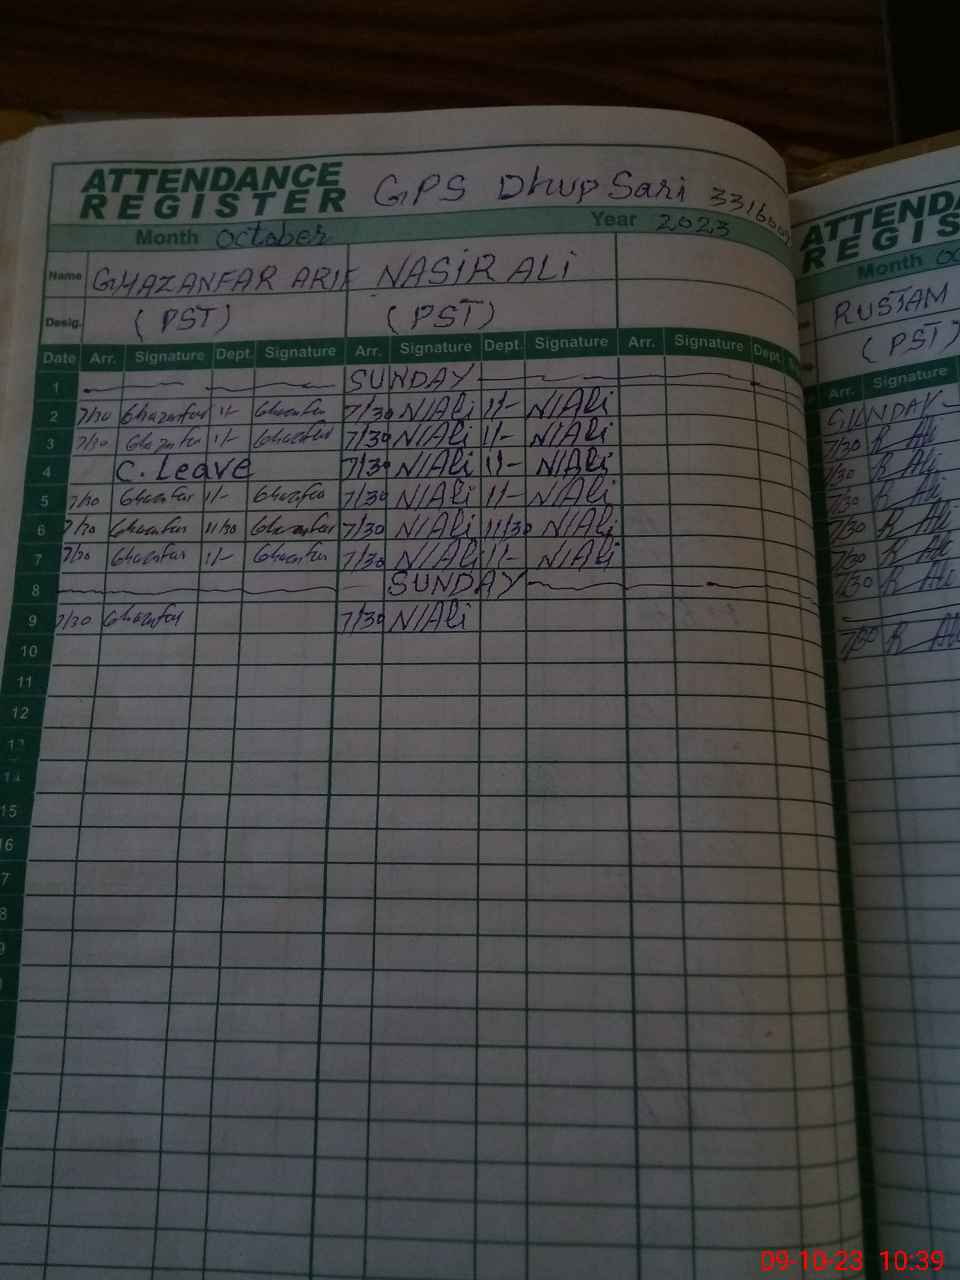 ATTENDANCE REGISTER GPS Dhup Sari
Month October Year 2023
Name GHAZANFAR ARIF NASIR ALi
Desig. (PST) (PST)
Date Arr. Signature Dept. Signature Arr. Signature Dept. Signature Arr. Signature Dept.
1 SUNDAY
2 7/30 Ghazanfar 1/- Ghazanfar 7/30 N/Ali 1/- N/Ali
3 7/30 Ghazanfar 1/- Ghazanfar 7/30 N/Ali 1/- N/Ali
4 C. Leave 7/30 N/Ali 1/- N/Ali
5 7/30 Ghazanfar 1/- Ghazanfar 7/30 N/Ali 1/- N/Ali
6 7/30 Ghazanfar 11/30 Ghazanfar 7/30 N/Ali 11/30 N/Ali
7 7/30 Ghazanfar 1/- Ghazanfar 7/30 N/Ali 1/- N/Ali
8 SUNDAY
9 7/30 Ghazanfar 7/30 N/Ali
10
11
12
13
14
15
16
7
8
9
ATTENDA
REGIS
Month Oc
RUSTAM
(PST)
Arr. Signature
SUNDAY
7/30 R Ali
7/30 R Ali
7/30 R Ali
7/30 R Ali
7/30 R Ali
7/30 R Ali
7/30 R Ali
09-10-23 10:39